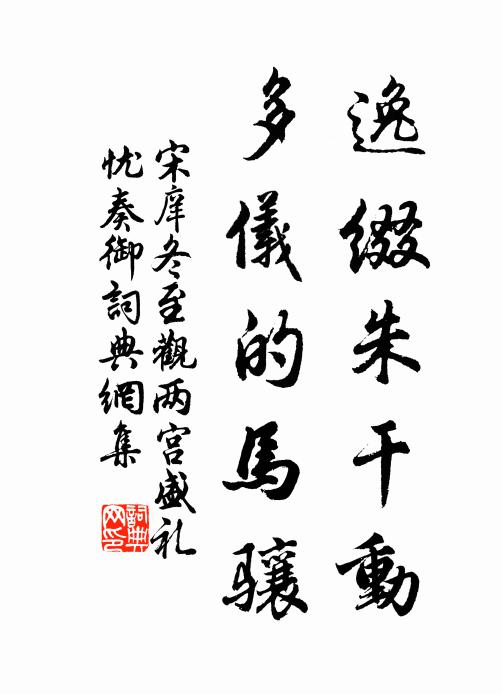 逸缀朱干動
多儀的馬驤
宋庠冬至觀两宫盛礼
忱奏御詞典網集
詞典
网印